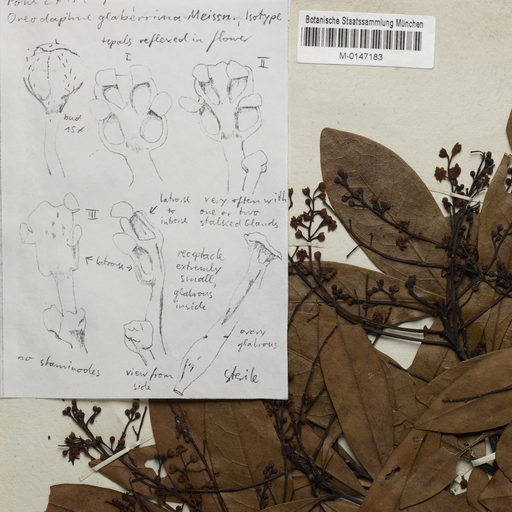 Oreodaphne glaberrima Meissn. Isotype
tepals reflexed in flower
I
II
bud
15x
III
latrose
to
introse
very often with
one or two
stalked Glands
←latrose→
receptacle
extremly
small,
glabrous
inside
ovary
glabrous
no staminodes
view from
side
Sterile
Botanische Staatssammlung München
M-0147183